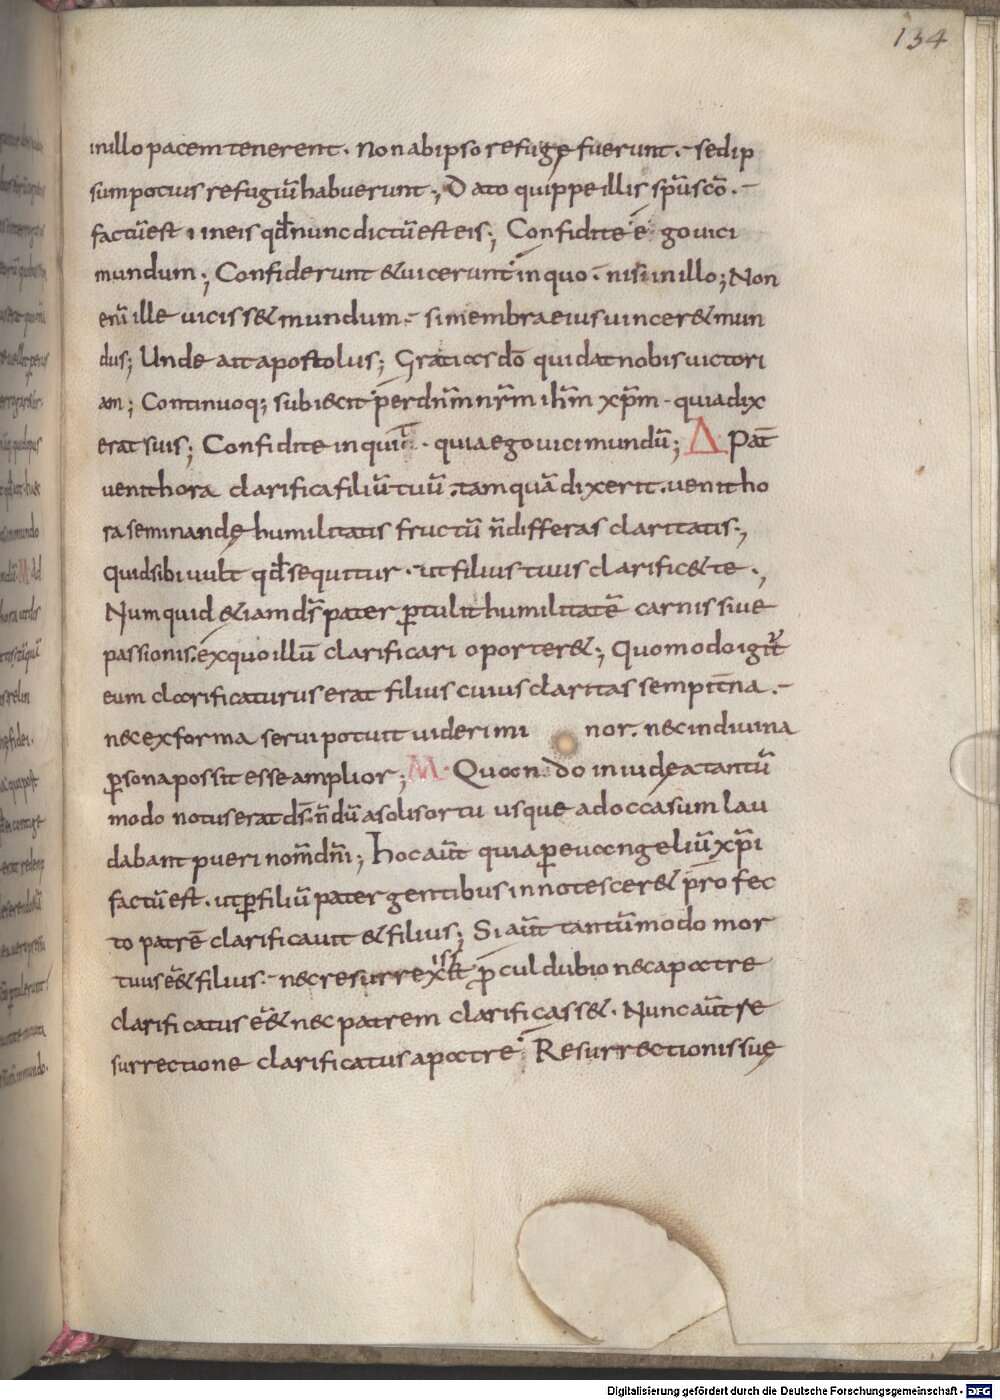 134
inillo pacem tenerent. Non ab ipso refugę fuerunt. sed ip
sum potius refugiū habuerunt; Dato quippe illis sp̄u sc̄o.
factū est in eis qđ nunc dictū est eis; Confidite ego uici
mundum; Confiderunt & uicerunt in quo. nisi in illo; Non
eni ille uiciss& mundum. si membra eius uincer& mun
dus; Unde ait apostolus; Gratias dō qui dat nobis uictori
am; Continuoq; subiecit per dn̄m nr̄m ihm̄ xp̄m. quia dix
erat suis; Confidite inquit. quia ego uici mundū; Δ Pat̄
uenit hora clarifica filiū tuū. tamquā dixerit. uenit ho
ra seminandę humilitatis fructū n̄ differas claritatis;
quid sibi uult qđ sequitur. ut filius tuus clarific& te.,
Numquid &iam ds̄ pater ꝑtulit humilitatē carnis siue
passionis. ex quo illū clarificari oporter&; Quomodo igit̄
eum clarificaturus erat filius cuius claritas sempit̄na.
nec ex forma serui potuit uideri mi nor. nec in diuina
ꝑsona possit esse amplior; M. Quando in iudea tantū
modo notus erat ds̄. n̄dū a solis ortu usque ad occasum lau
dabant pueri nom̄ dn̄i; Hoc aūt quia ꝑ euangeliū xp̄i
factū est. ut ꝑ filiū pater gentibus innotescer& profec
to patrē clarificauit & filius; Si aūt tantūmodo mor
tuus ē& filius. nec resurrexiss& procul dubio nec a patre
clarificatus ē& nec patrem clarificass&. Nunc aūt re
surrectione clarificatus a patre. Resurrectionis suę
Digitalisierung gefördert durch die Deutsche Forschungsgemeinschaft - DFG